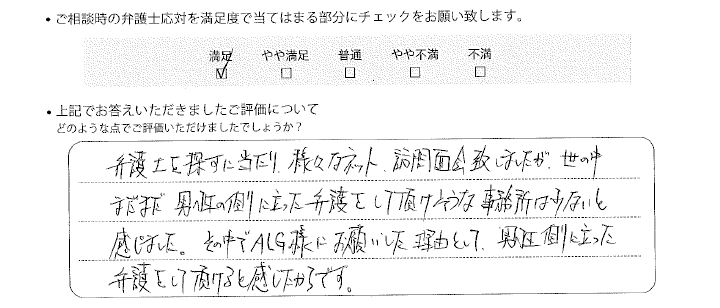 • ご相談時の弁護士応対を満足度で当てはまる部分にチェックをお願い致します。
満足 やや満足 普通 やや不満 不満
☑ □ □ □ □
• 上記でお答えいただきましたご評価について
どのような点でご評価いただけましたでしょうか?
弁護士を探すに当たり、様々なネット、訪問面会致しましたが、世の中
まだまだ男性の側に立った弁護をして頂けそうな事務所は少ないと
感じました。その中でALG様にお願いした理由として、男性側に立った
弁護をして頂けると感じたからです。